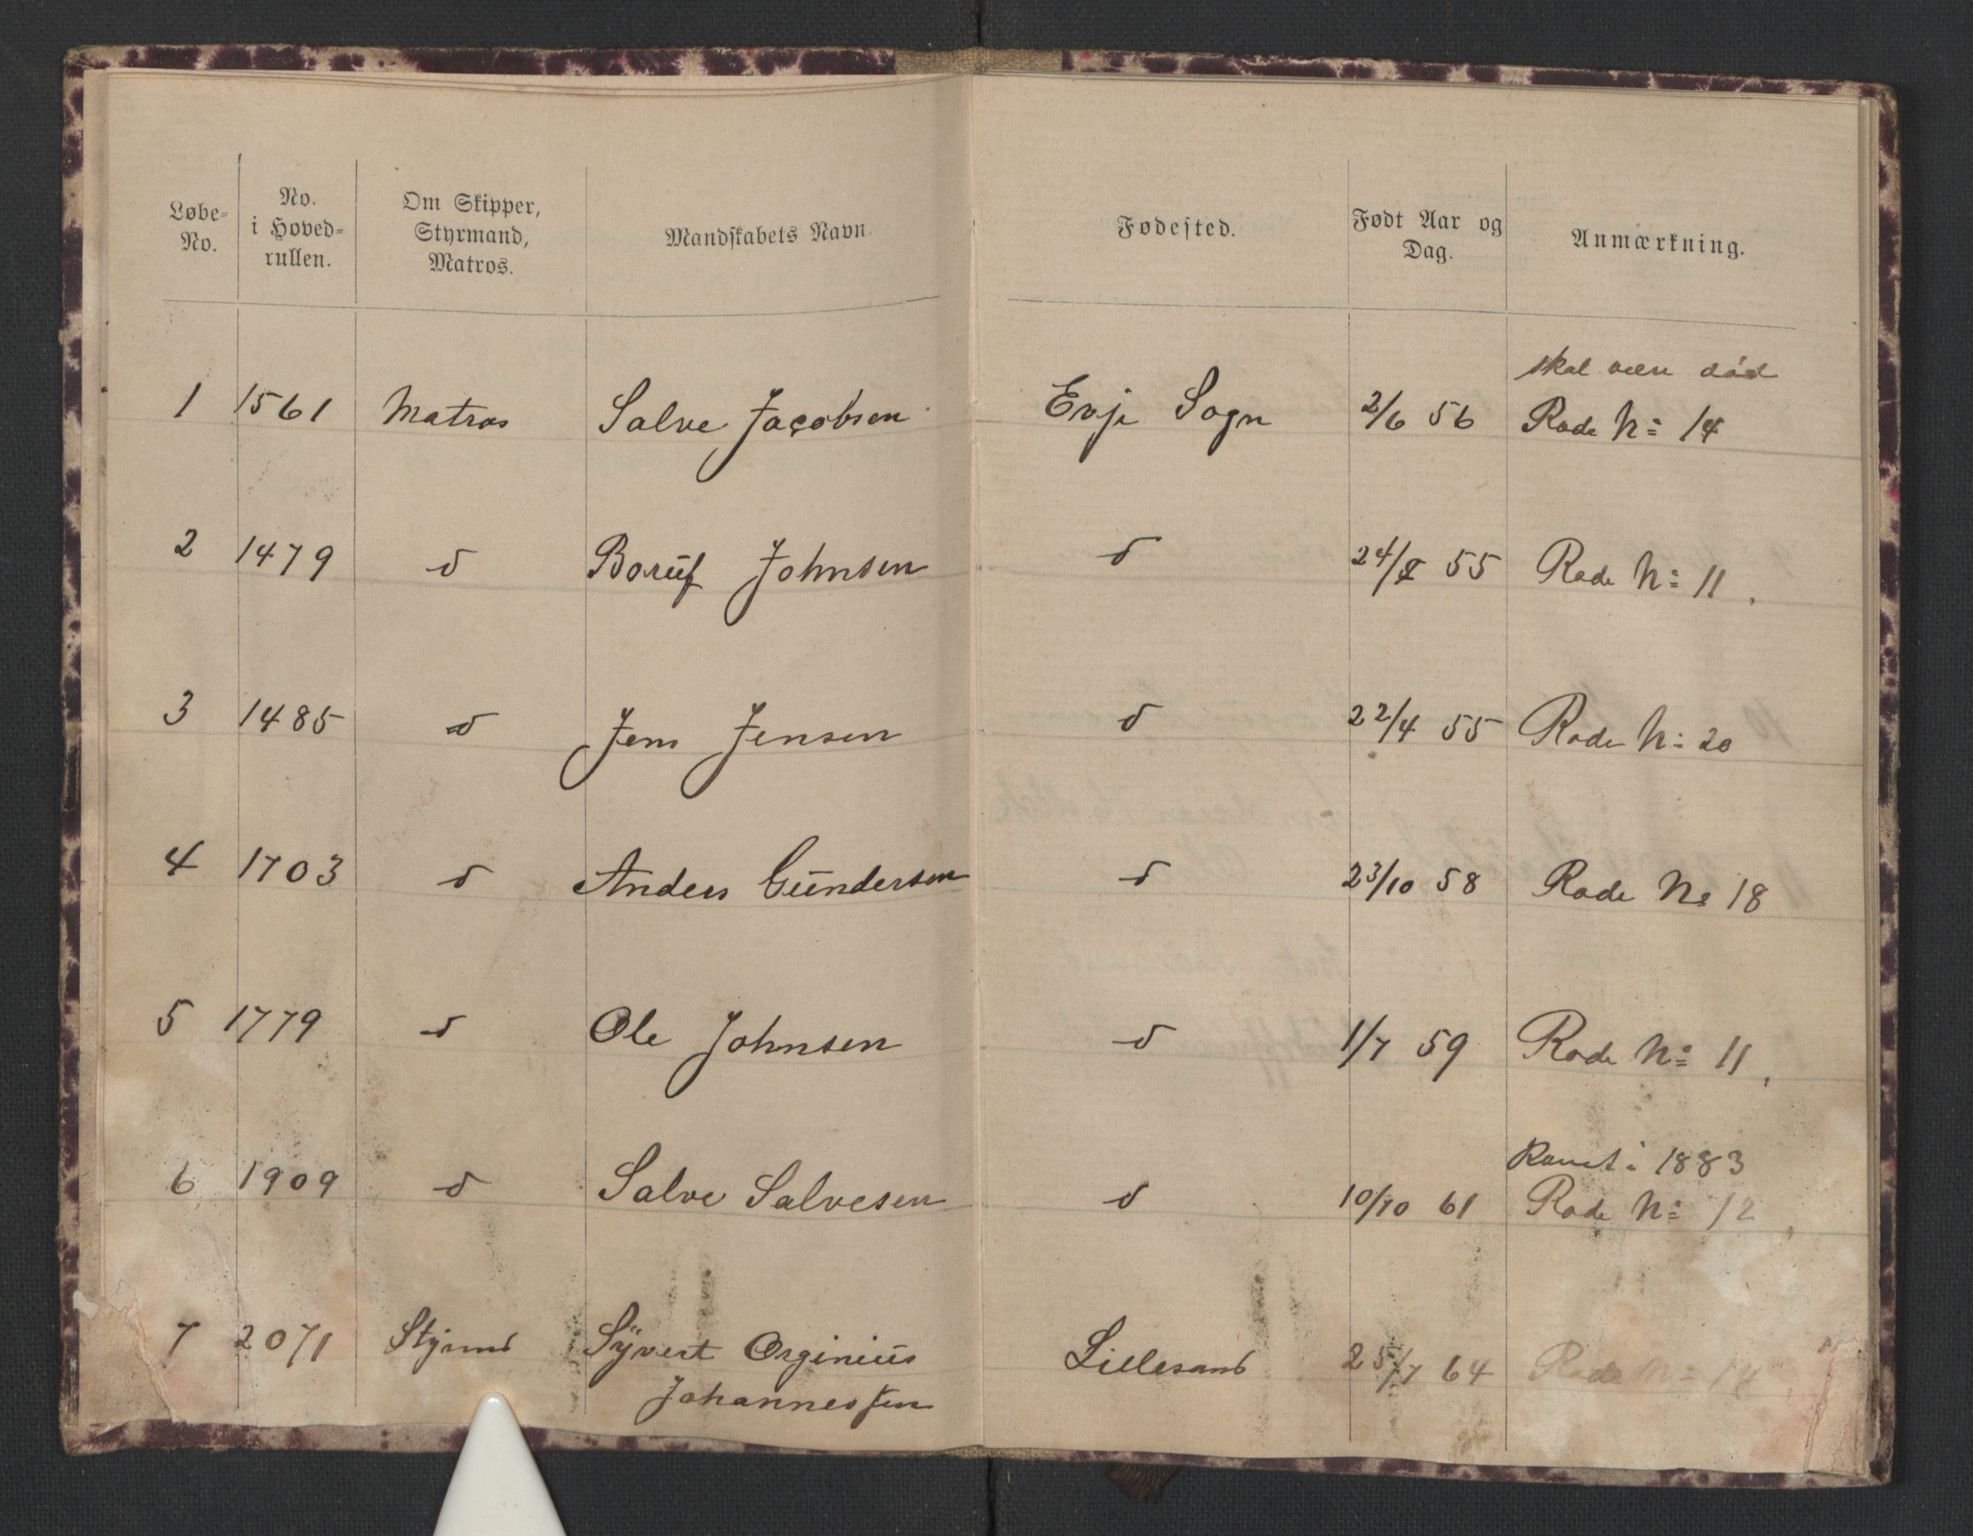 Løbe-No. | No. i Hoved-rullen. | Om Skipper, Styrmand, Matros. | Mandskabets Navn. | Fødested. | Født Aar og Dag. | Anmærkning.
skal være død
1 1561 Matros Salve Jacobsen Evje Sogn 2/6 56 Rode No: 14
2 1479 d Boruf Johnsen d 24/ 55 Rode No: 11,
3 1485 d Jens Jensen d 22/4 55 Rode No: 20
4 1703 d Anders Gundersen d 23/10 58 Rode No 18
5 1779 d Ole Johnsen d 1/7 59 Rode No: 11,
i 1883
6 1909 d Salve Salvesen d 10/10 61 Rode No: 12,
7 2071 Styrmd Syvert Orginius Lillesand 25/7 64 Rode No: 14
Johannessen